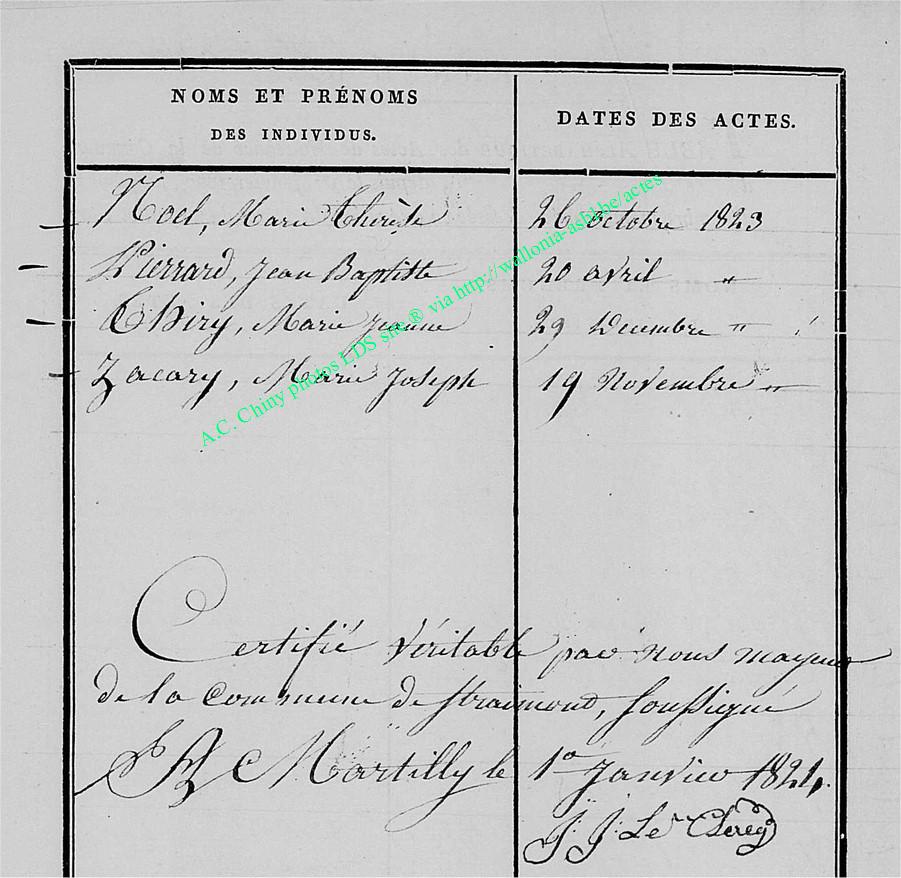 NOMS ET PRÉNOMS
DES INDIVIDUS.
DATES DES ACTES.
Noel, Marie Thérèse 26 octobre 1823
Pierrard, Jean Baptiste 20 avril "
Thiry, Marie Jeanne 29 Decembre "
Zacary, Marie Joseph 19 Novembre "
A.C. Chiny photos LDS site ® via http://wallonia-asbl.be/actes
Certifié véritable par nous mayeur
de la commune de Straimont, soussigné
Martilly le 1er Janvier 1824.
J: J: Le Clercq